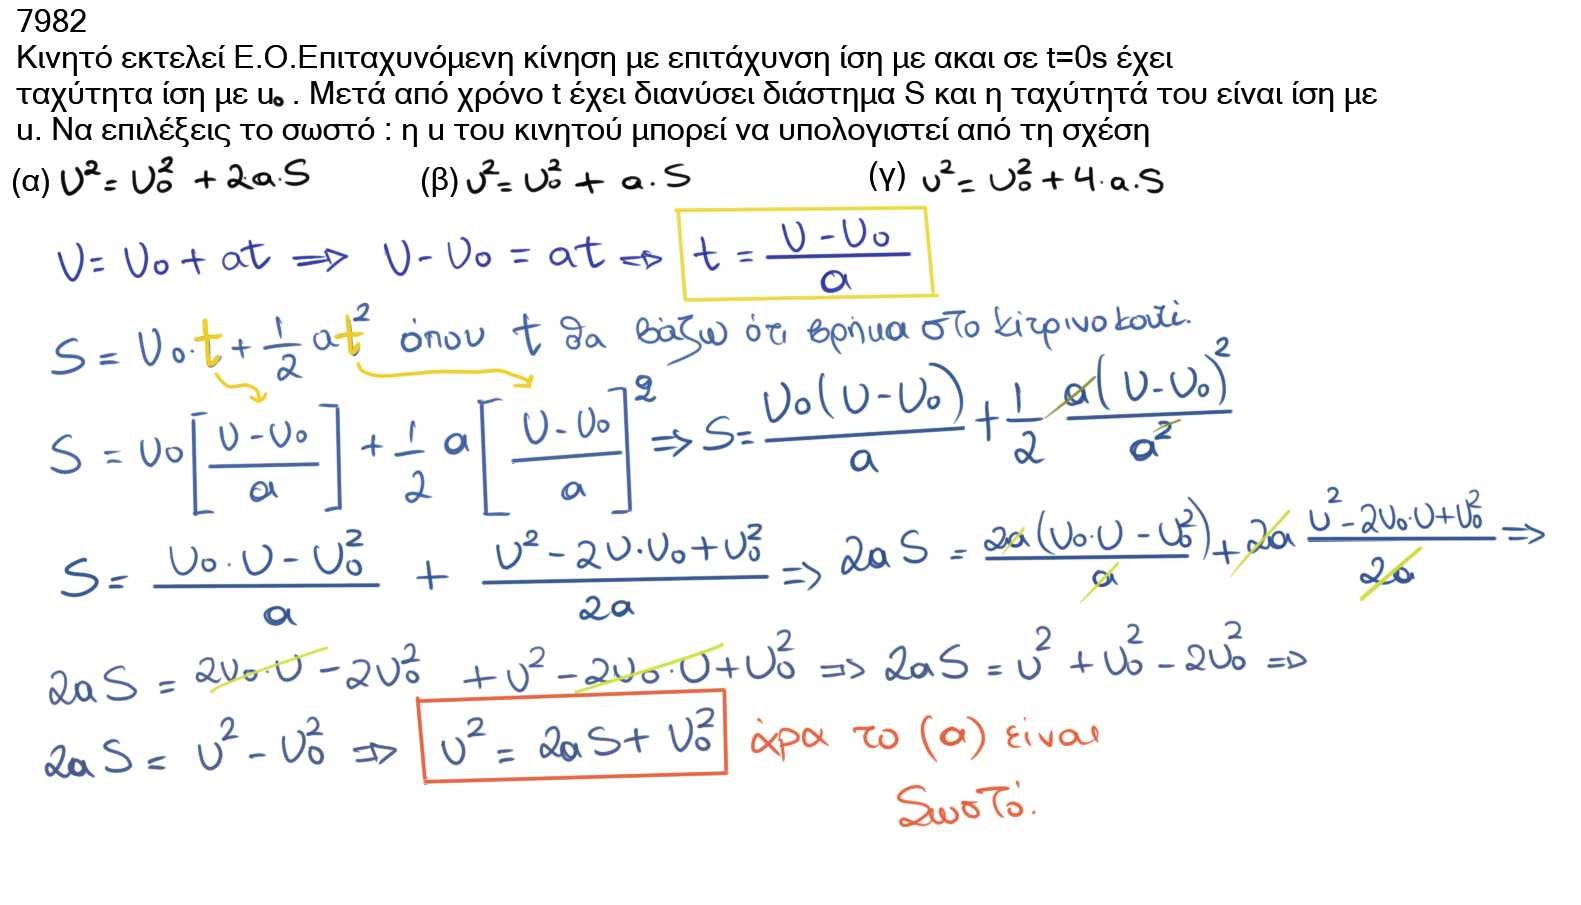 7982
Κινητό εκτελεί Ε.Ο.Επιταχυνόμενη κίνηση με επιτάχυνση ίση με ακαι σε t=0s έχει
ταχύτητα ίση με u₀ . Μετά από χρόνο t έχει διανύσει διάστημα S και η ταχύτητά του είναι ίση με
u. Να επιλέξεις το σωστό : η u του κινητού μπορεί να υπολογιστεί από τη σχέση
(α) υ² = υ₀² + 2α·S (β) υ² = υ₀² + α·S (γ) υ² = υ₀² + 4·α·S
υ = υ₀ + αt ⇒ υ - υ₀ = αt ⇒ t = (υ - υ₀)/α
S = υ₀·t + 1/2 αt² όπου t θα βάζω ότι βρήκα στο κίτρινο κουτί.
S = υ₀[(υ - υ₀)/α] + 1/2 α[(υ - υ₀)/α]² ⇒ S = υ₀(υ - υ₀)/α + 1/2 α(υ - υ₀)²/α²
S = (υ₀·υ - υ₀²)/α + (υ² - 2υ·υ₀ + υ₀²)/2α ⇒ 2αS = 2α(υ₀·υ - υ₀²)/α + 2α (υ² - 2υ₀·υ + υ₀²)/2α ⇒
2αS = 2υ₀·υ - 2υ₀² + υ² - 2υ₀·υ + υ₀² ⇒ 2αS = υ² + υ₀² - 2υ₀² ⇒
2αS = υ² - υ₀² ⇒ υ² = 2αS + υ₀² άρα το (α) είναι
Σωστό.